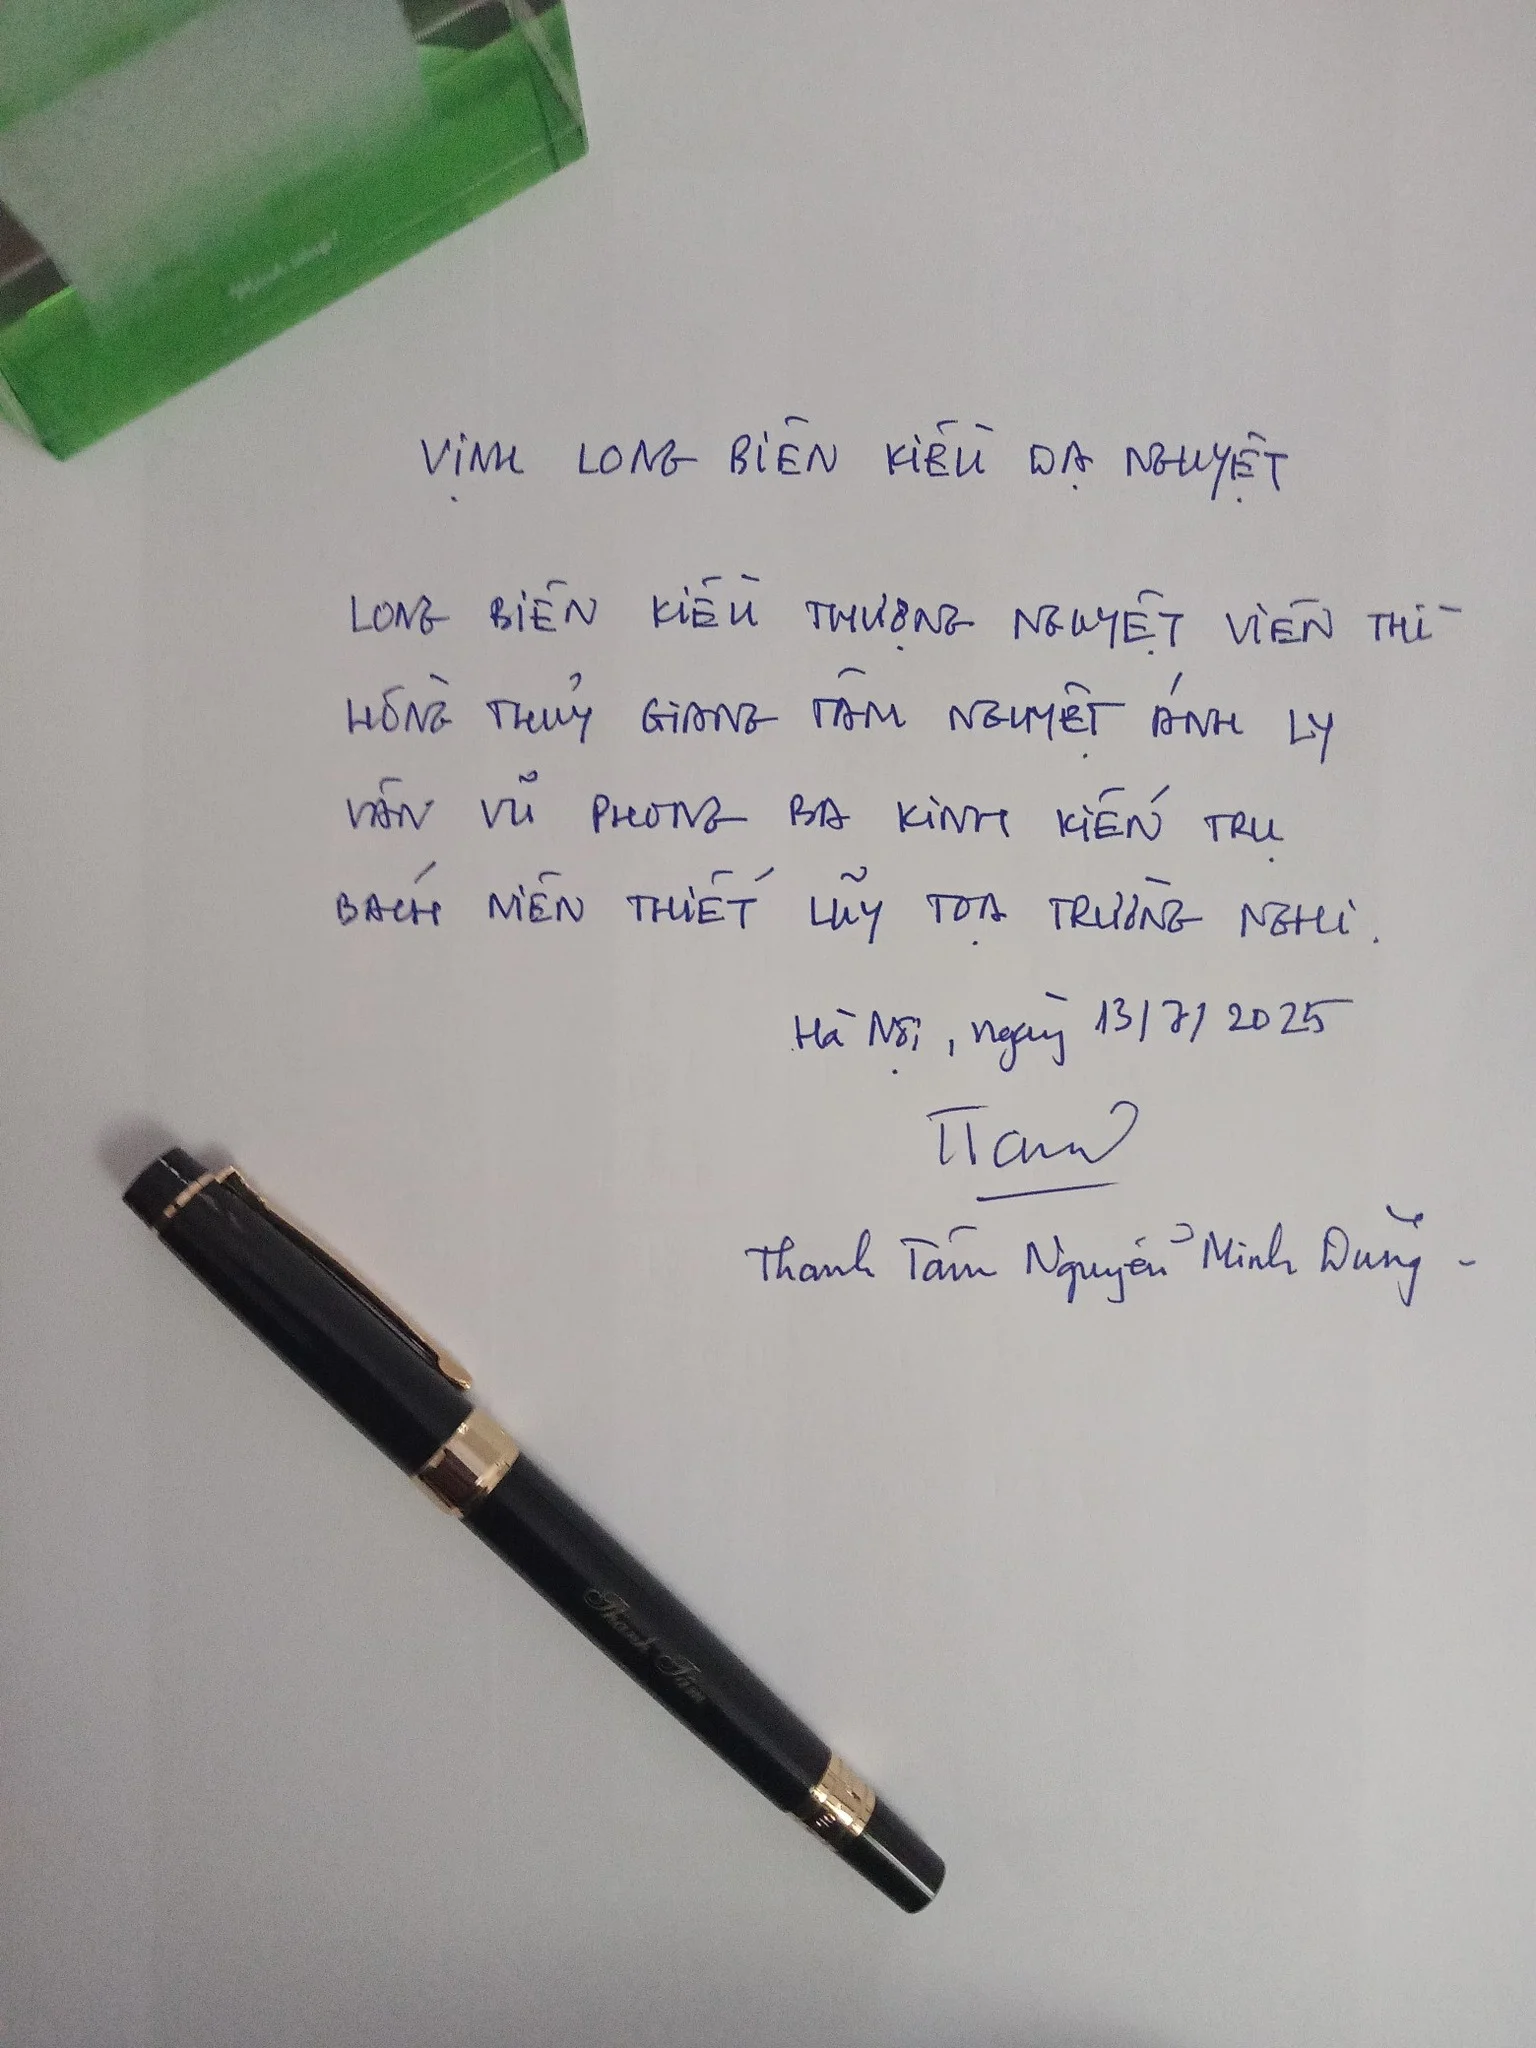 VỊNH LONG BIÊN KIỀU DẠ NGUYỆT
LONG BIÊN KIỀU THƯỢNG NGUYỆT VIÊN THÌ
HỒNG THỦY GIANG TÂM NGUYỆT ÁNH LY
VÂN VŨ PHONG BA KINH KIẾN TRỤ
BÁCH NIÊN THIẾT LŨY TỌA TRƯỜNG NGHI.
Hà Nội, ngày 13/7/2025
Thanh Tâm Nguyễn Minh Dũng -
Thanh Tâm